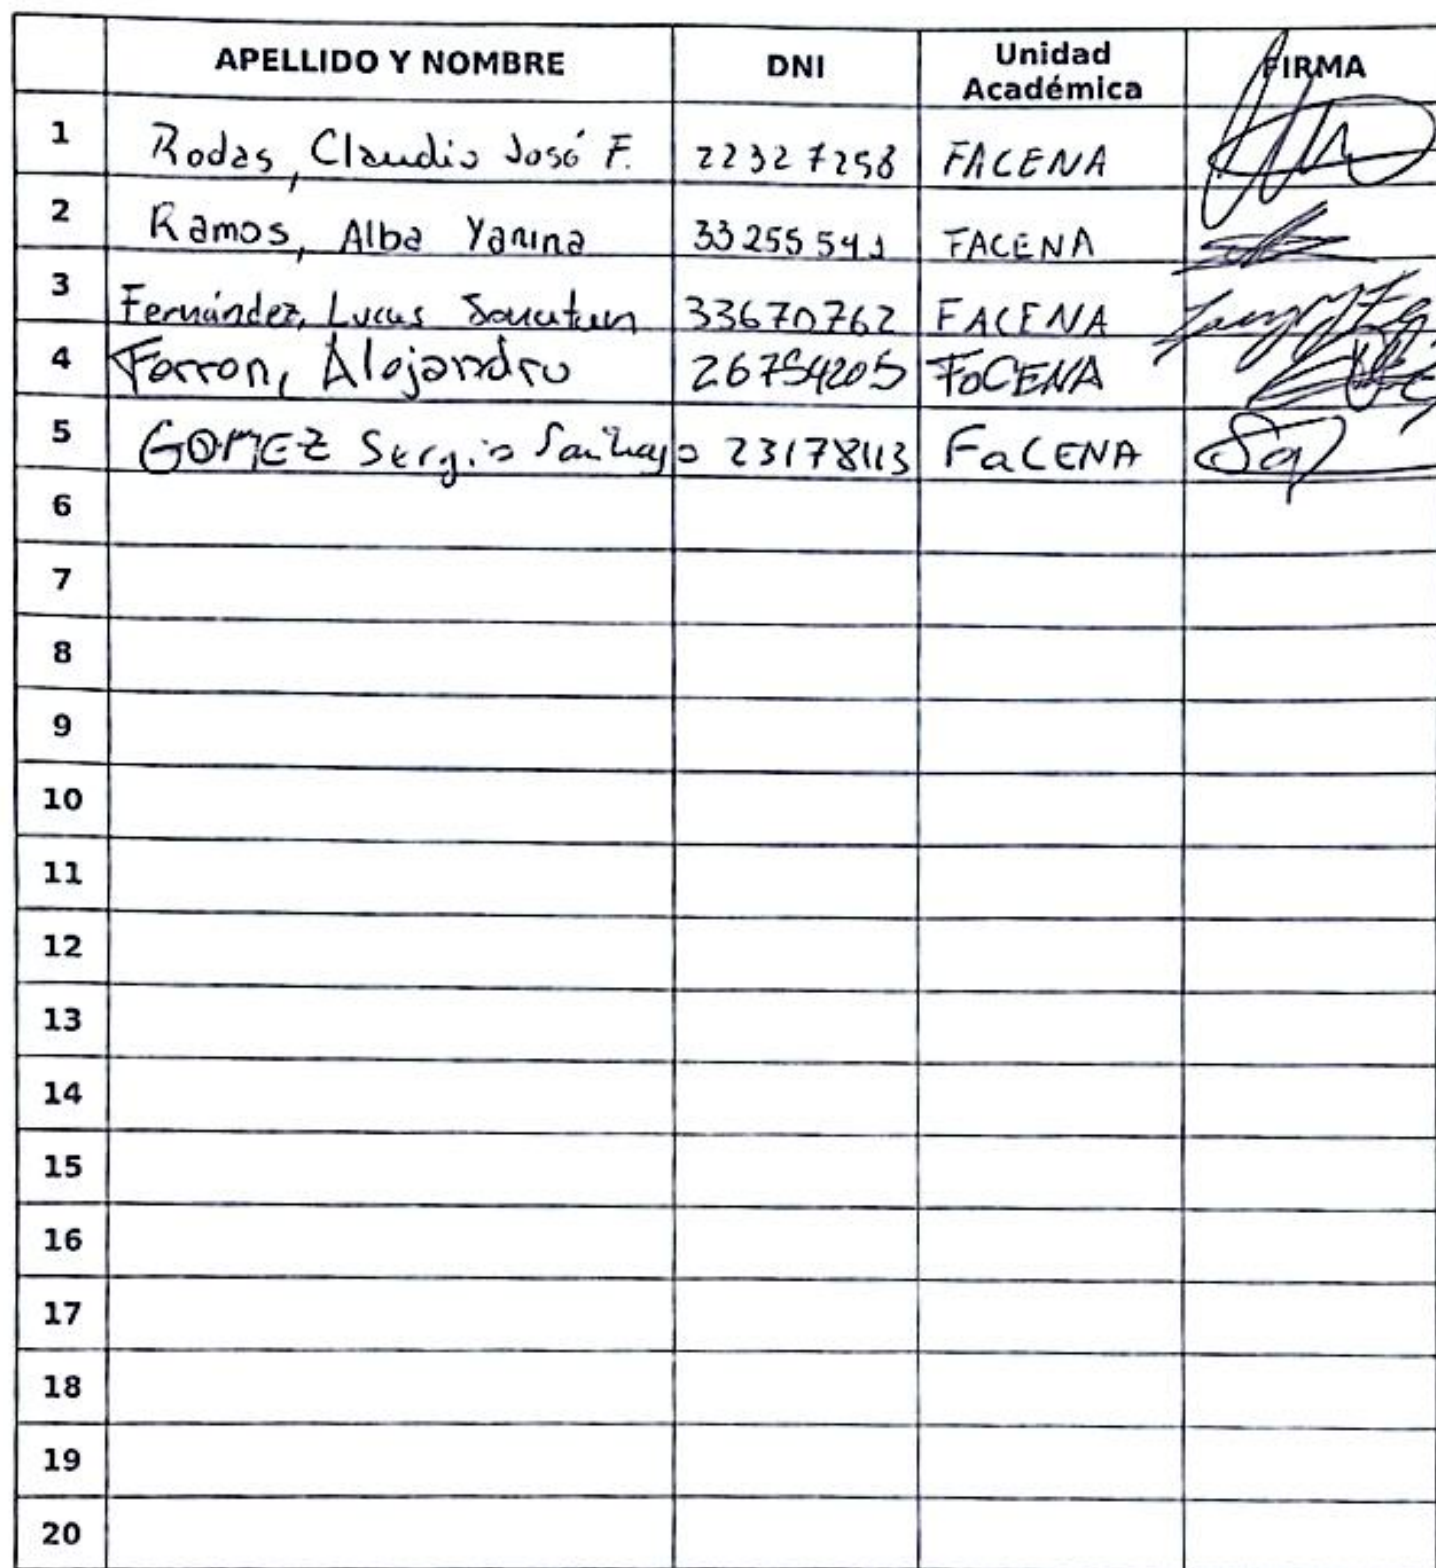 APELLIDO Y NOMBRE DNI Unidad Académica FIRMA
1 Rodas, Claudio José F. 22327258 FACENA
2 Ramos, Alba Yanina 33255541 FACENA
3 Fernández, Lucas 33670762 FACENA
4 Farron, Alejandro 26754205 FaCENA
5 GOMEZ Sergio Santiago 23178113 FaCENA
6
7
8
9
10
11
12
13
14
15
16
17
18
19
20